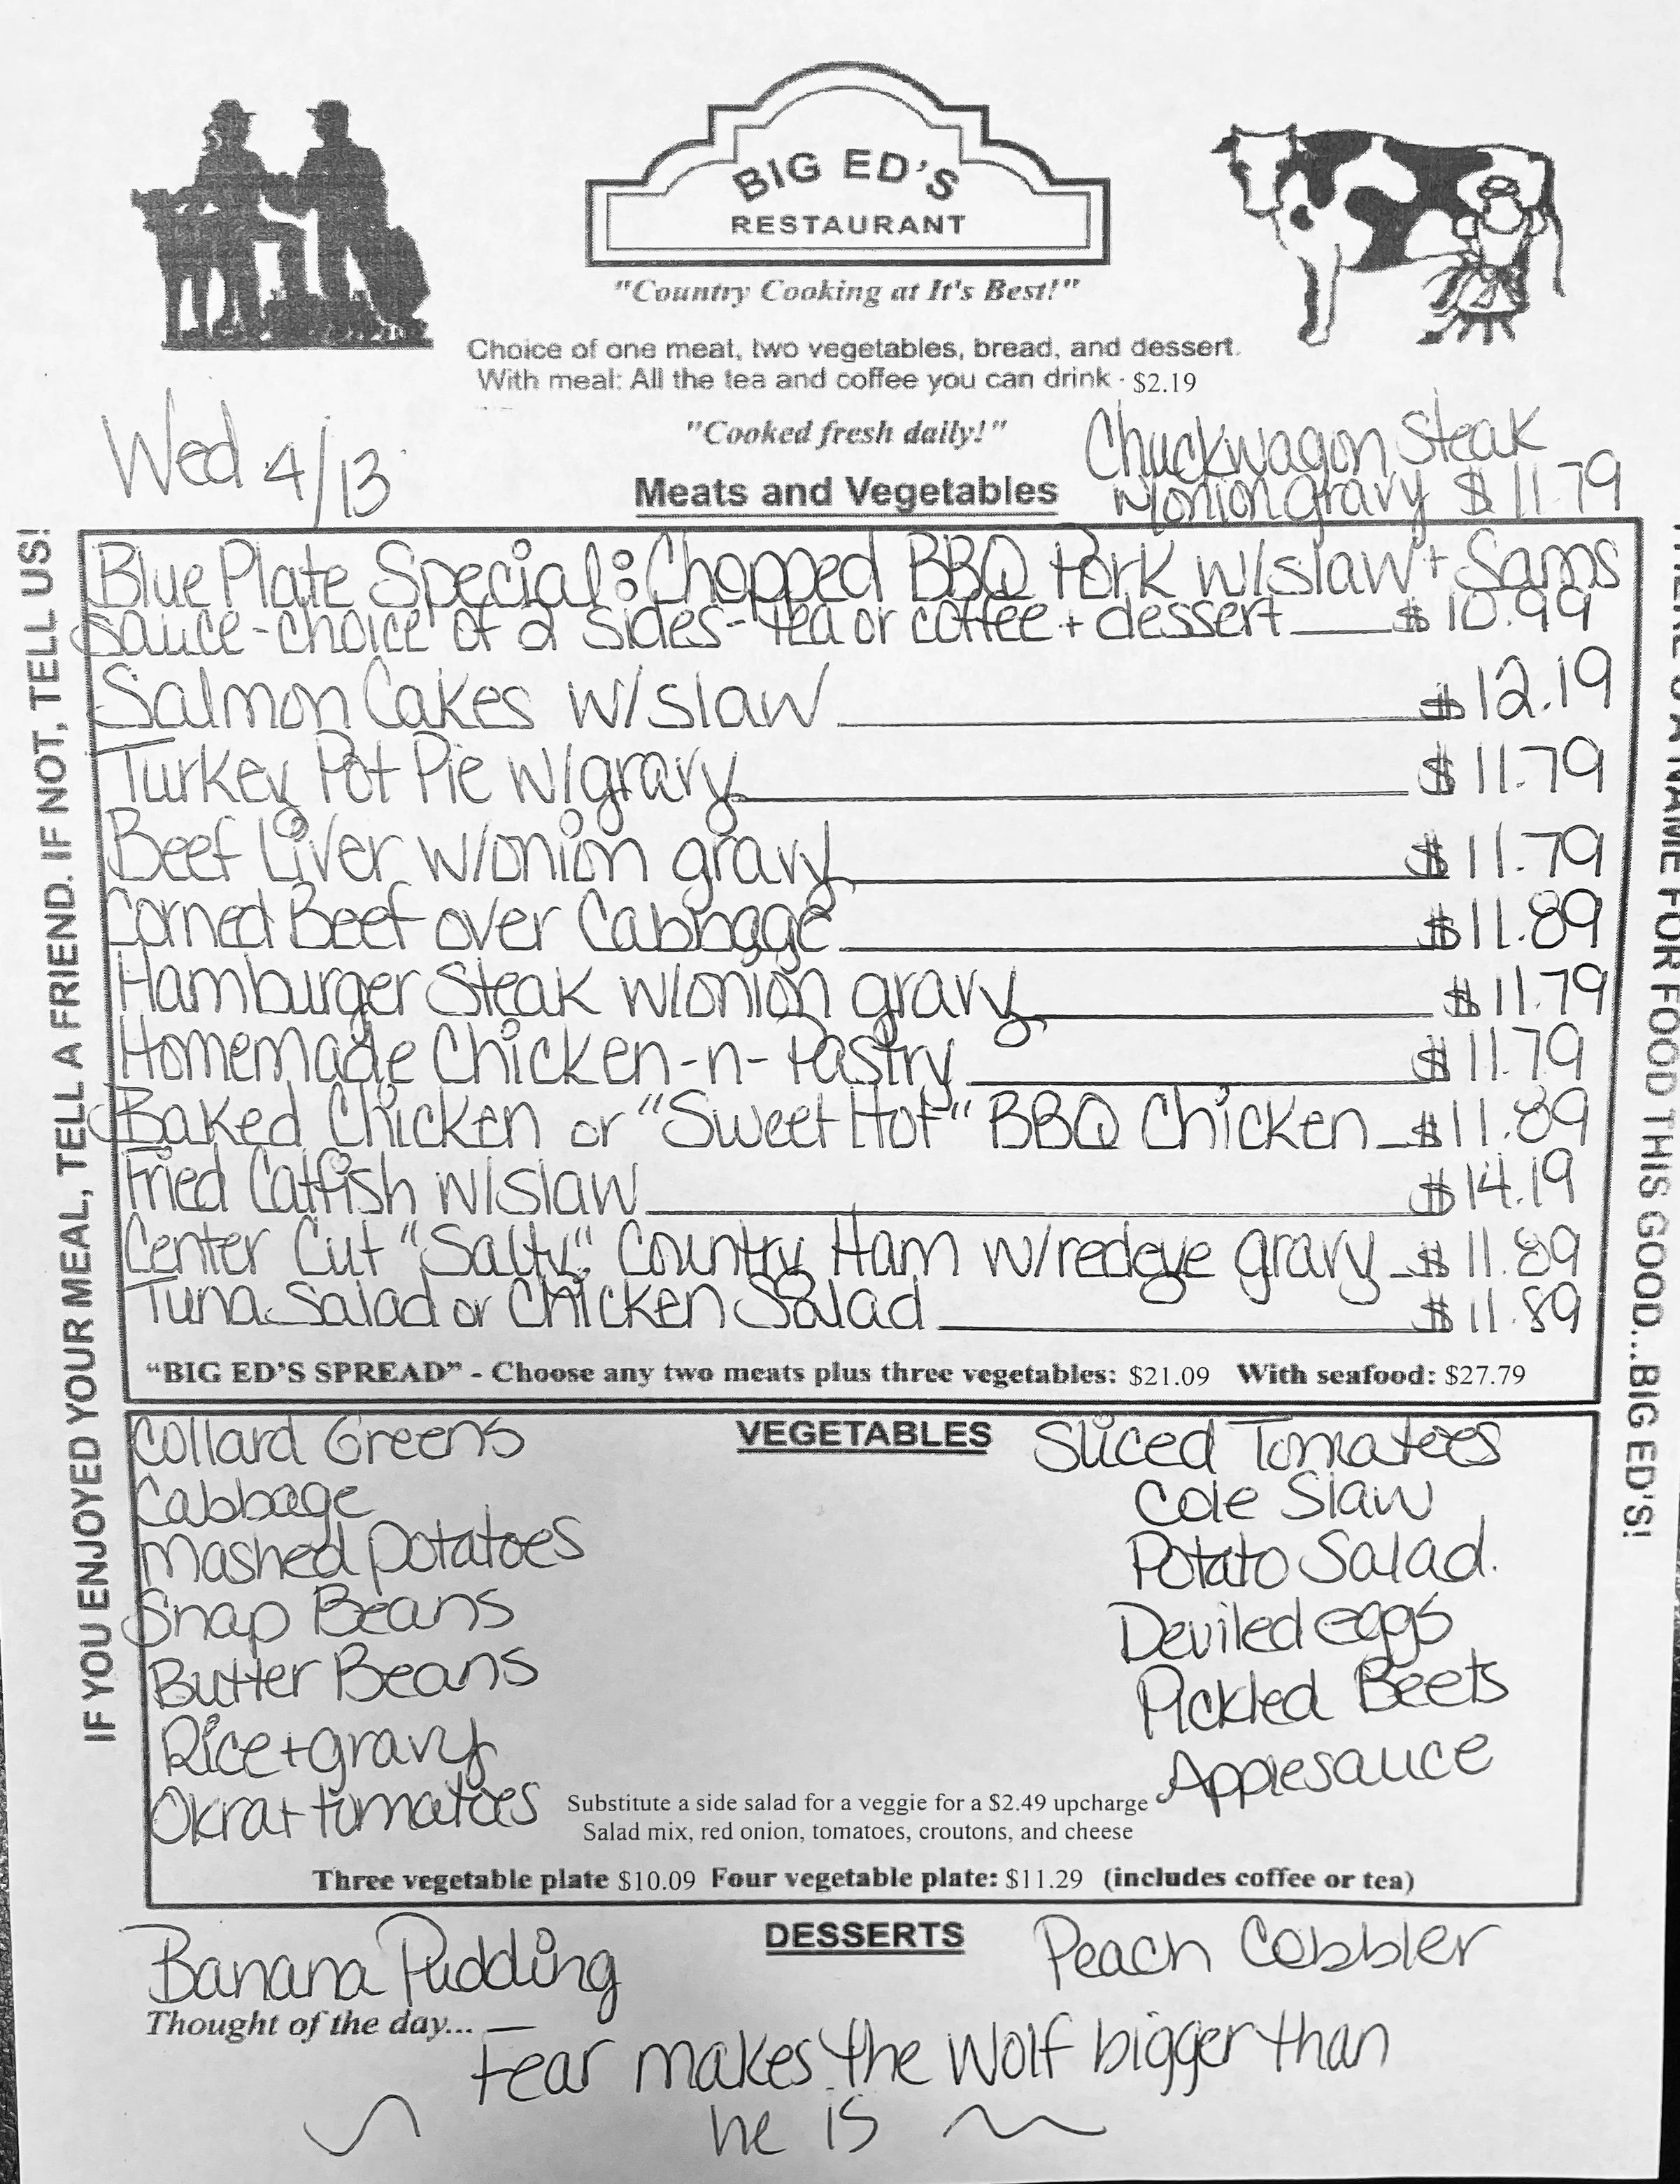 BIG ED'S
RESTAURANT
"Country Cooking at It's Best!"
Choice of one meat, two vegetables, bread, and dessert.
With meal: All the tea and coffee you can drink - $2.19
"Cooked fresh daily!"
Wed 4/13
Chuckwagon Steak
w/onion gravy $11.79
Meats and Vegetables
Blue Plate Special: Chopped BBQ Pork w/slaw + Sams
sauce - choice of 2 sides - tea or coffee + dessert $10.99
Salmon Cakes w/slaw $12.19
Turkey Pot Pie w/gravy $11.79
Beef Liver w/onion gravy $11.79
Corned Beef over Cabbage $11.89
Hamburger Steak w/onion gravy $11.79
Homemade Chicken-n-Pastry $11.79
Baked Chicken or "Sweet Hot" BBQ Chicken $11.89
Fried Catfish w/slaw $14.19
Center Cut "Salty" Country Ham w/redeye gravy $11.89
Tuna Salad or Chicken Salad $11.89
"BIG ED'S SPREAD" - Choose any two meats plus three vegetables: $21.09 With seafood: $27.79
VEGETABLES
Collard Greens
Cabbage
Mashed potatoes
Snap Beans
Butter Beans
Rice + gravy
Okra + tomatoes
Sliced Tomatoes
Cole Slaw
Potato Salad.
Deviled eggs
Pickled Beets
Applesauce
Substitute a side salad for a veggie for a $2.49 upcharge
Salad mix, red onion, tomatoes, croutons, and cheese
Three vegetable plate $10.09 Four vegetable plate: $11.29 (includes coffee or tea)
DESSERTS
Banana Pudding
Peach Cobbler
Thought of the day...
Fear makes the wolf bigger than
he is
IF YOU ENJOYED YOUR MEAL, TELL A FRIEND. IF NOT, TELL US!
A NAME FOR FOOD THIS GOOD...BIG ED'S!